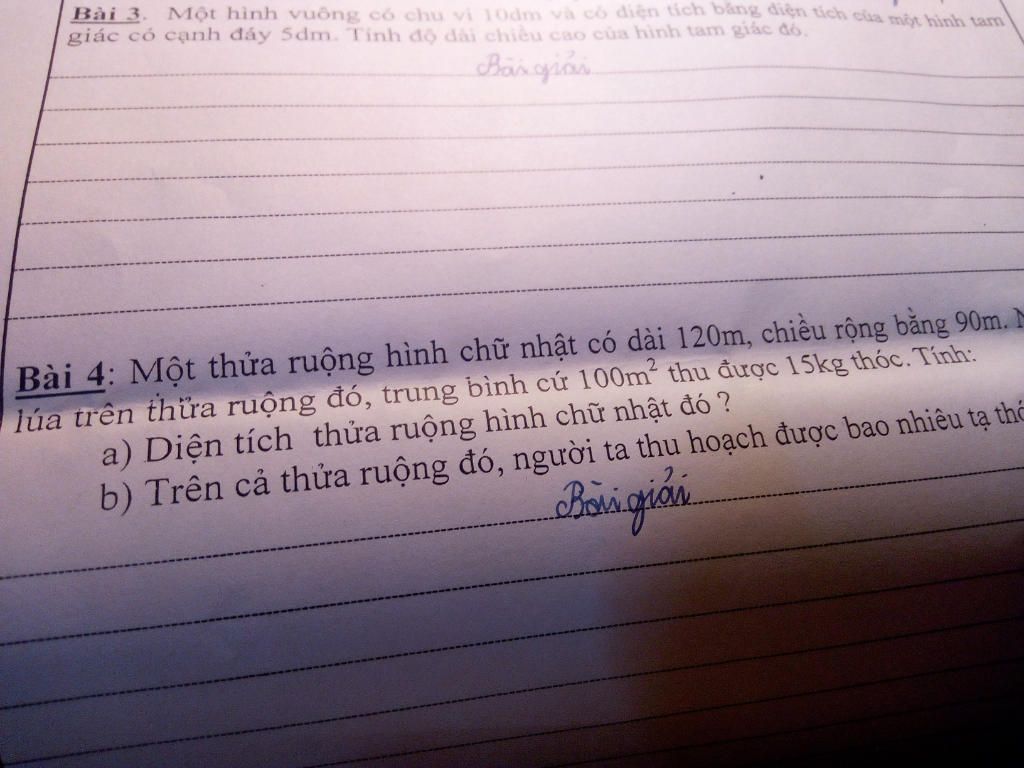 Bài 3. Một hình vuông có chu vi 10dm và có diện tích bằng diện tích của một hình tam
giác có cạnh đáy 5dm. Tính độ dài chiều cao của hình tam giác đó.
Bài giải
Bài 4: Một thửa ruộng hình chữ nhật có dài 120m, chiều rộng bằng 90m.
lúa trên thửa ruộng đó, trung bình cứ 100m² thu được 15kg thóc. Tính:
a) Diện tích thửa ruộng hình chữ nhật đó ?
b) Trên cả thửa ruộng đó, người ta thu hoạch được bao nhiêu tạ
Bài giải